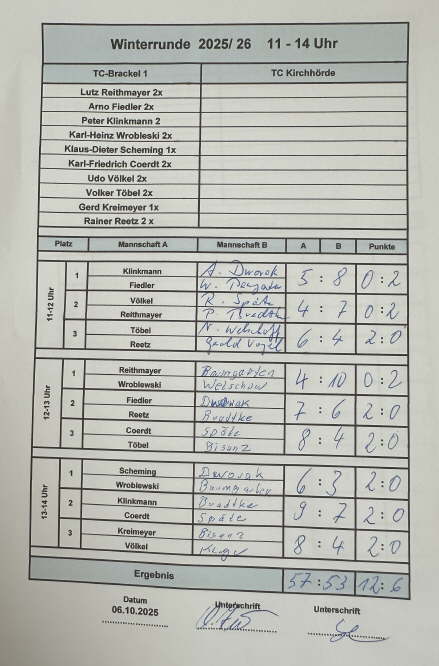 Winterrunde 2025/ 26 11 - 14 Uhr
TC-Brackel 1 TC Kirchhörde
Lutz Reithmayer 2x
Arno Fiedler 2x
Peter Klinkmann 2
Karl-Heinz Wrobleski 2x
Klaus-Dieter Scheming 1x
Karl-Friedrich Coerdt 2x
Udo Völkel 2x
Volker Töbel 2x
Gerd Kreimeyer 1x
Rainer Reetz 2 x
Platz Mannschaft A Mannschaft B A B Punkte
11-12 Uhr
1 Klinkmann A. Dworak 5 : 8 0 : 2
Fiedler W.
2 Völkel R. Späte 4 : 7 0 : 2
Reithmayer P.
3 Töbel N. 6 : 4 2 : 0
Reetz Gerold Vogel
12-13 Uhr
1 Reithmayer Baumgarten 4 : 10 0 : 2
Wroblewski Welschow
2 Fiedler Dworak 7 : 6 2 : 0
Reetz Bradtke
3 Coerdt Späte 8 : 4 2 : 0
Töbel Bisanz
13-14 Uhr
1 Scheming Dworak 6 : 3 2 : 0
Wroblewski Baumgarten
2 Klinkmann Bradtke 9 : 7 2 : 0
Coerdt Späte
3 Kreimeyer Bisanz 8 : 4 2 : 0
Völkel
Ergebnis 57 : 53 12 : 6
Datum Unterschrift Unterschrift
06.10.2025